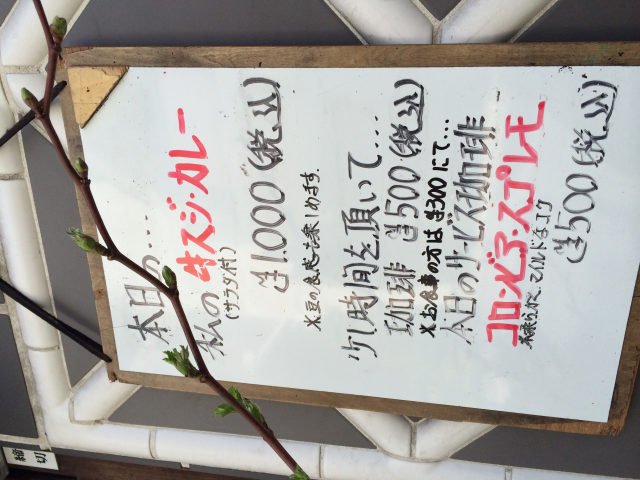 本日の...
私の 牛スジ・カレー
(サラダ付)
¥1.000(税込)
※豆の食感も楽しめます。
少し時間を頂いて...
珈琲 ¥500(税込)
※お食事の方は¥300にて...
本日のサービス珈琲
コロンビア・スプレモ
柔らかくマイルドなコク
¥500(税込)
締切